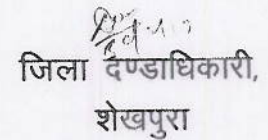 जिला दण्डाधिकारी,
शेखपुरा